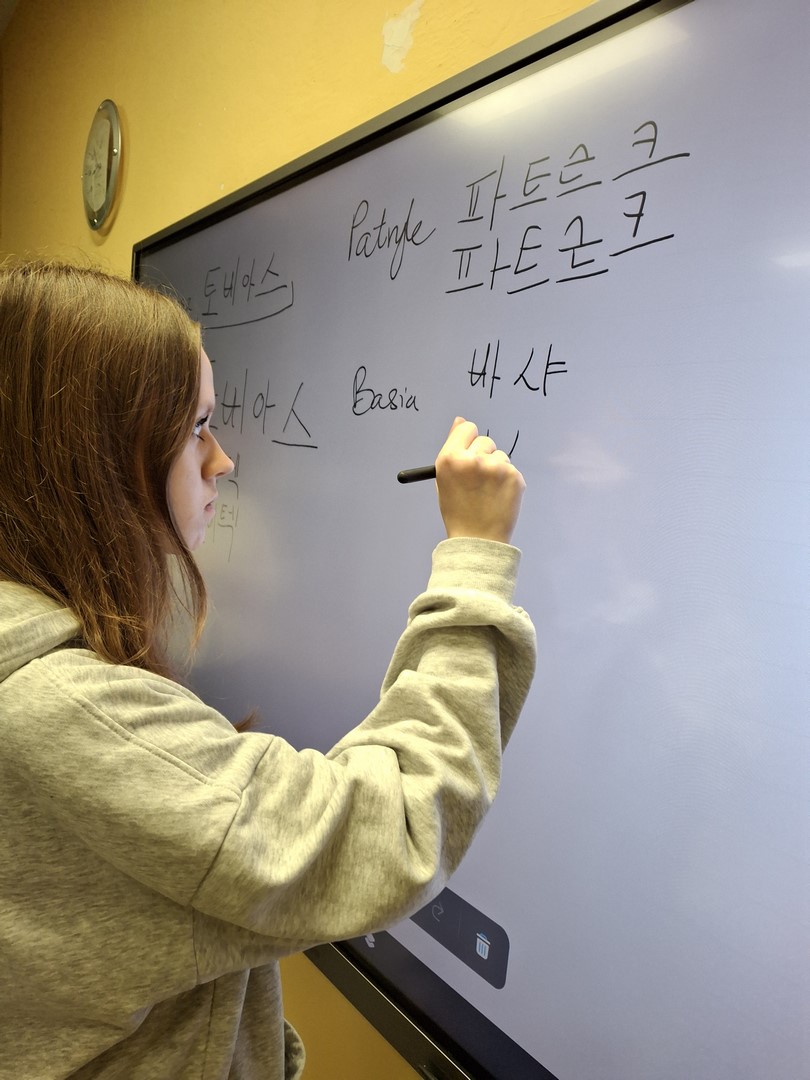 토비아스
Patryk 파트르크
파트르크
비아스
Basia 바샤